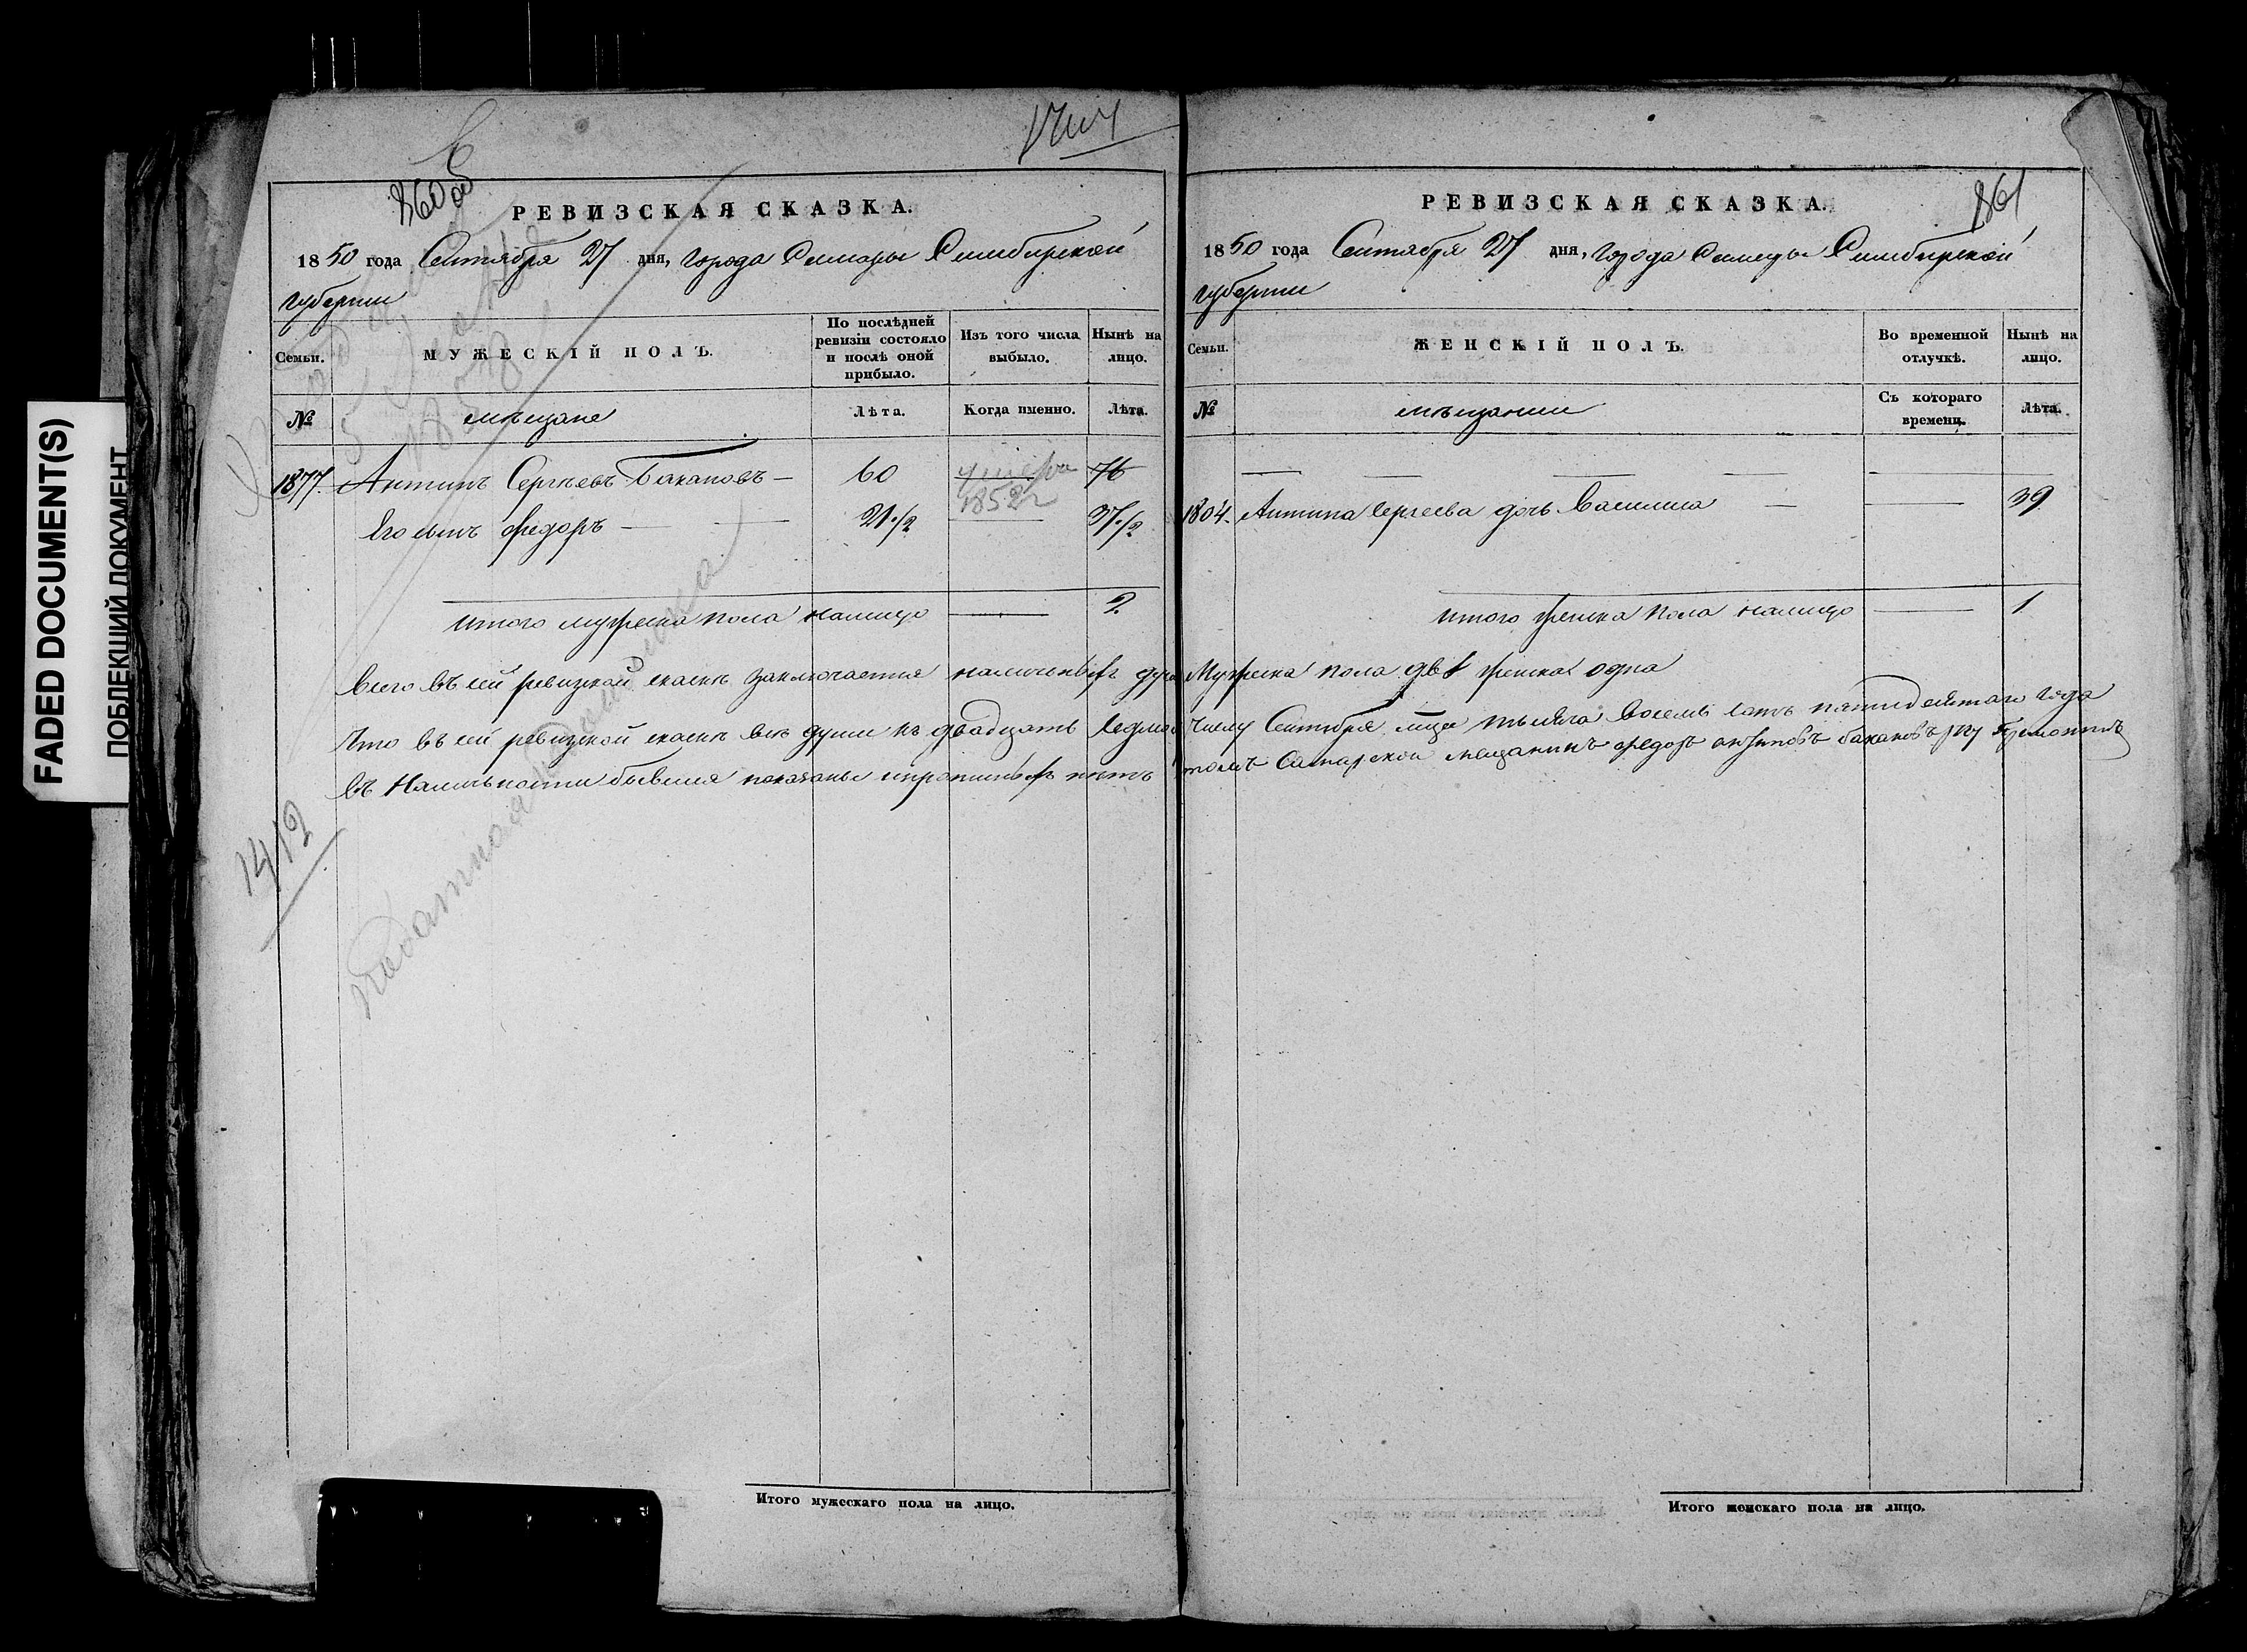 FADED DOCUMENT(S)
ПОБЛЕКЩИЙ ДОКУМЕНТ
860 об
РЕВИЗСКАЯ СКАЗКА.
1850 года Сентября 27 дня, Города Самары Симбирской
губернии
Семьи.
МУЖЕСКІЙ ПОЛЪ.
По послѣдней ревизіи состояло и послѣ оной прибыло.
Изъ того числа выбыло.
Нынѣ на лицо.
№
мѣщане
Лѣта.
Когда именно.
Лѣта.
1877. Антипъ Сергѣевъ Бакановъ — 60 умеръ 1852 г 76
Его сынъ Федоръ — 21 1/2 — 37 1/2
Итого мужеска пола налицо — 2
1412
Подушная
Итого мужескаго пола на лицо.
861
РЕВИЗСКАЯ СКАЗКА.
1850 года Сентября 27 дня, Города Самары Симбирской
губернии
Семьи.
ЖЕНСКІЙ ПОЛЪ.
Во временной отлучкѣ.
Нынѣ на лицо.
№
мѣщанки
Съ котораго времени.
Лѣта.
1804. Антипа Сергеева дочь Василиса — — 39
Итого женска пола налицо — 1
Всего въ сей ревизской сказкѣ заключается наличныхъ душъ Мужеска пола двѣ женска одна
Что въ сей ревизской сказкѣ все души къ двадцать седмому Числу Сентября мца тысяча восемь сотъ пятидесятаго года
въ Наличности бывшия показаны и прописныхъ нетъ томъ Самарской мещанинъ федоръ антиповъ бакановъ руку приложилъ
Итого женскаго пола на лицо.